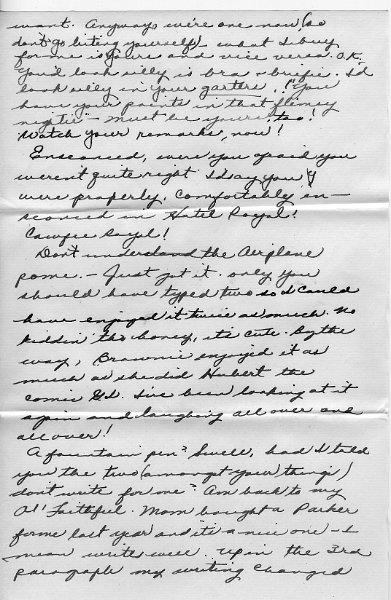 want. Anyways we're one now, (so
don't go biting yourself) what I buy
for me is yours and vice versa. O.K.
You'd look silly in bra + briefie. I'd
look silly in your garters. "You
have your points in that flimsy
nightie" - must be yours too!
Watch your remarks, now!
Ensconced, were you afraid you
weren't quite right I'd say you
were properly, comfortably en-
sconced in Hotel Royal!
Cawfee Royal!
Don't understand the Airplane
pome. - Just got it. only you
should have typed two so I could
have enjoyed it twice as much. No
kiddin' tho honey, it's cute. By the
way, Brownie enjoyed it as
much as she did Hubert the
comic G.I. I've been looking at it
again and laughing all over and
all over!
A fountain pen? Swell, had I told
you the two (amongst your things)
don't write for me? Am back to my
Ol' Faithful. Mom bought a Parker
for me last year and it's a nice one - I
mean write well. Up in the 3rd
paragraph my writing changed